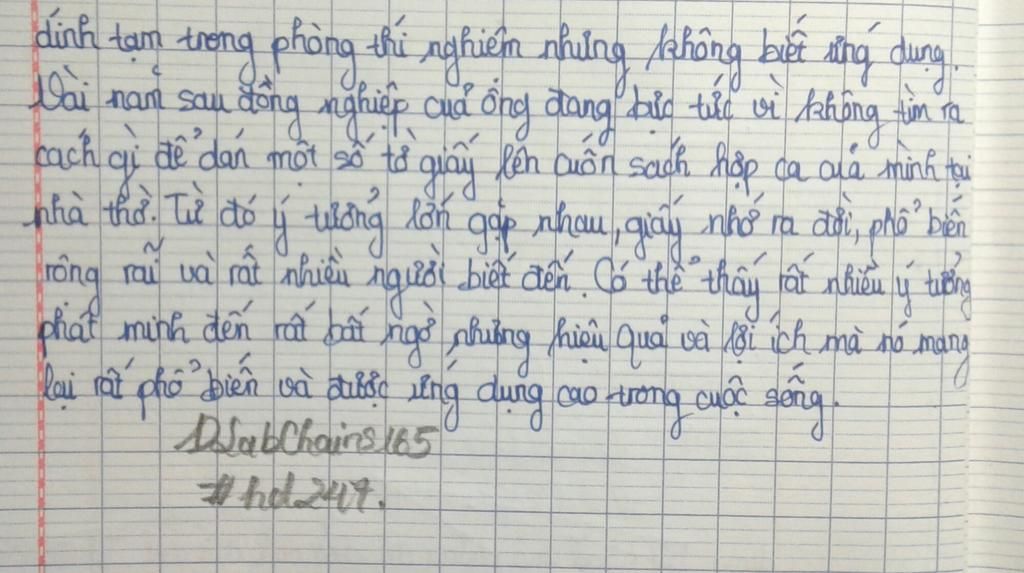 dính tạm trong phòng thí nghiệm nhưng không biết ứng dụng.
Vài năm sau đồng nghiệp của ông đang bực tức vì không tìm ra
cách gì để dán một số tờ giấy lên cuốn sách hợp ca của mình tại
nhà thờ. Từ đó ý tưởng lớn gặp nhau, giấy nhớ ra đời, phổ biến
rông rãi và rất nhiều người biết đến. Có thể thấy rất nhiều ý tưởng
phát minh đến rất bất ngờ nhưng hiệu quả và lợi ích mà nó mang
lại rất phổ biến và được ứng dụng cao trong cuộc sống.
DLabChains165
#hd247.